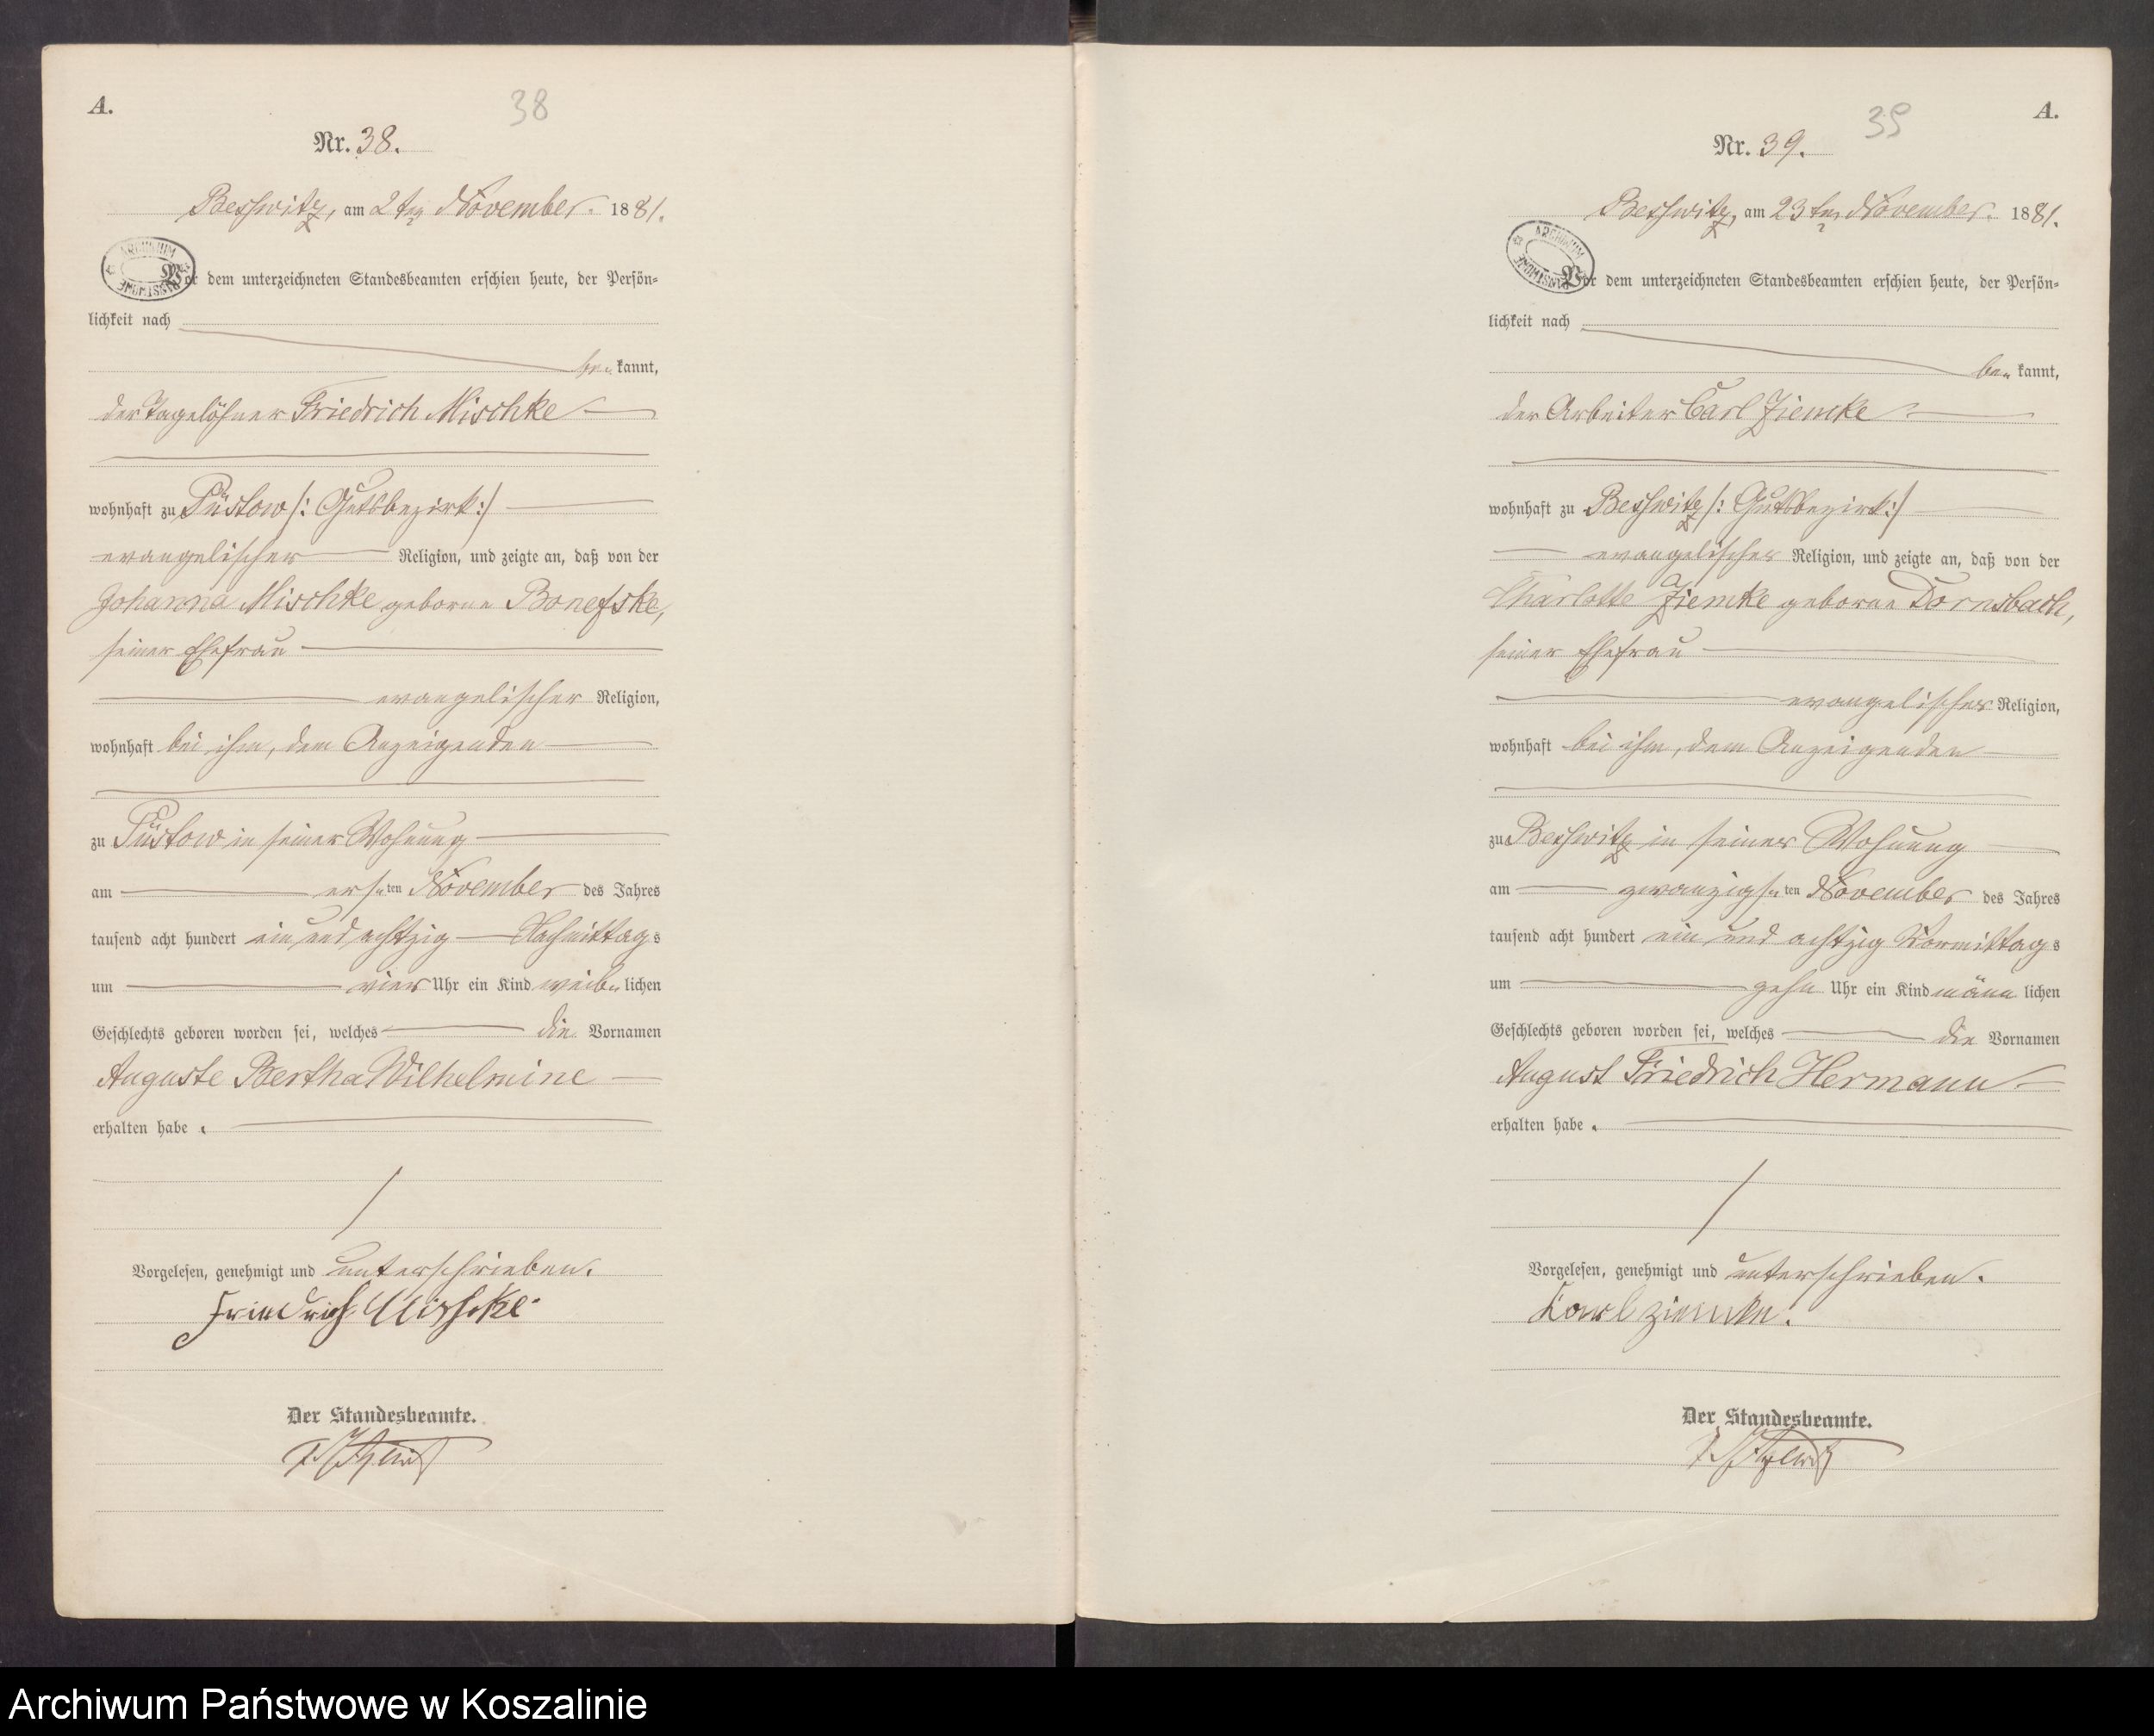 A.
38
Nr. 38.
Beßwitz, am 2ten November 1881.
ARCHIWUM PAŃSTWOWE
Vor dem unterzeichneten Standesbeamten erschien heute, der Persön-
lichkeit nach
be kannt,
der Tagelöhner Friedrich Mischke
wohnhaft zu Püstow /: Gutsbezirk :/
evangelischer Religion, und zeigte an, daß von der
Johanna Mischke geborne Bonefske,
seiner Ehefrau
evangelischer Religion,
wohnhaft bei ihm, dem Anzeigenden
zu Püstow in seiner Wohnung
am ersten November des Jahres
tausend acht hundert ein und achtzig Nachmittags
um vier Uhr ein Kind weiblichen
Geschlechts geboren worden sei, welches die Vornamen
Auguste Bertha Wilhelmine
erhalten habe.
Vorgelesen, genehmigt und unterschrieben.
Friedrich Mischke
Der Standesbeamte.
A.
39
Nr. 39.
Beßwitz, am 23ten November 1881.
ARCHIWUM PAŃSTWOWE
Vor dem unterzeichneten Standesbeamten erschien heute, der Persön-
lichkeit nach
be kannt,
der Arbeiter Carl Ziemke
wohnhaft zu Beßwitz /: Gutsbezirk :/
evangelischer Religion, und zeigte an, daß von der
Charlotte Ziemke geborne Dornsbach,
seiner Ehefrau
evangelischer Religion,
wohnhaft bei ihm, dem Anzeigenden
zu Beßwitz in seiner Wohnung
am zwanzigsten November des Jahres
tausend acht hundert ein und achtzig Vormittags
um zehn Uhr ein Kind männlichen
Geschlechts geboren worden sei, welches die Vornamen
August Friedrich Hermann
erhalten habe.
Vorgelesen, genehmigt und unterschrieben.
Karl Ziemke.
Der Standesbeamte.
Archiwum Państwowe w Koszalinie